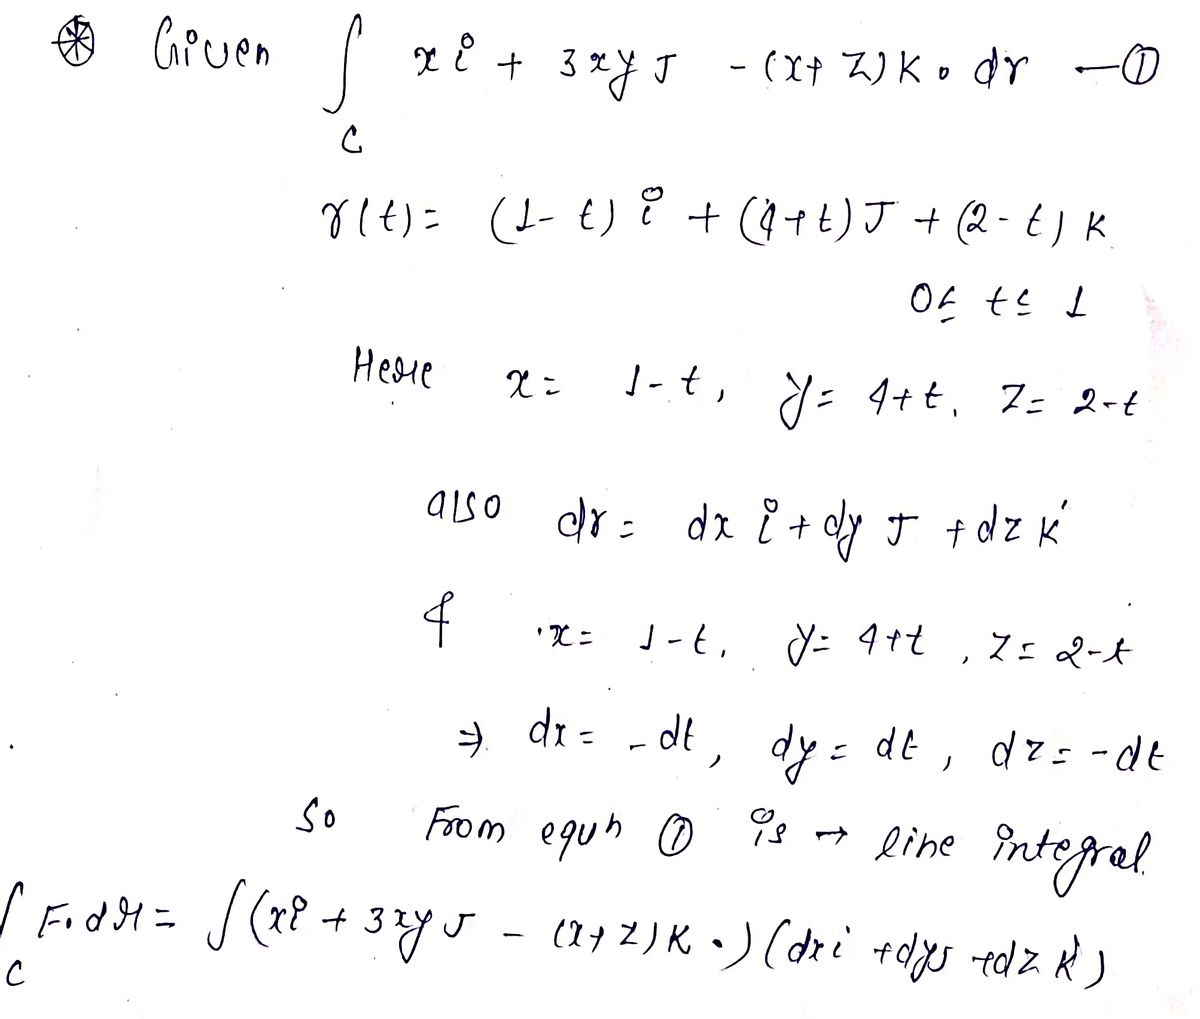 Given ∫ x i + 3xy J - (x+z) K • dr —①
C
r(t) = (1-t) i + (4+t) J + (2-t) K
0≤ t≤ 1
Here x = 1-t, y = 4+t, z = 2-t
also dr = dx i + dy J + dz K
& x = 1-t, y = 4+t, z = 2-t
⇒ dx = -dt, dy = dt, dz = -dt
So From equn ① is → line integral.
∫ F. dr = ∫(xi + 3xy J - (x+z) K •) (dx i + dy J + dz K)
C